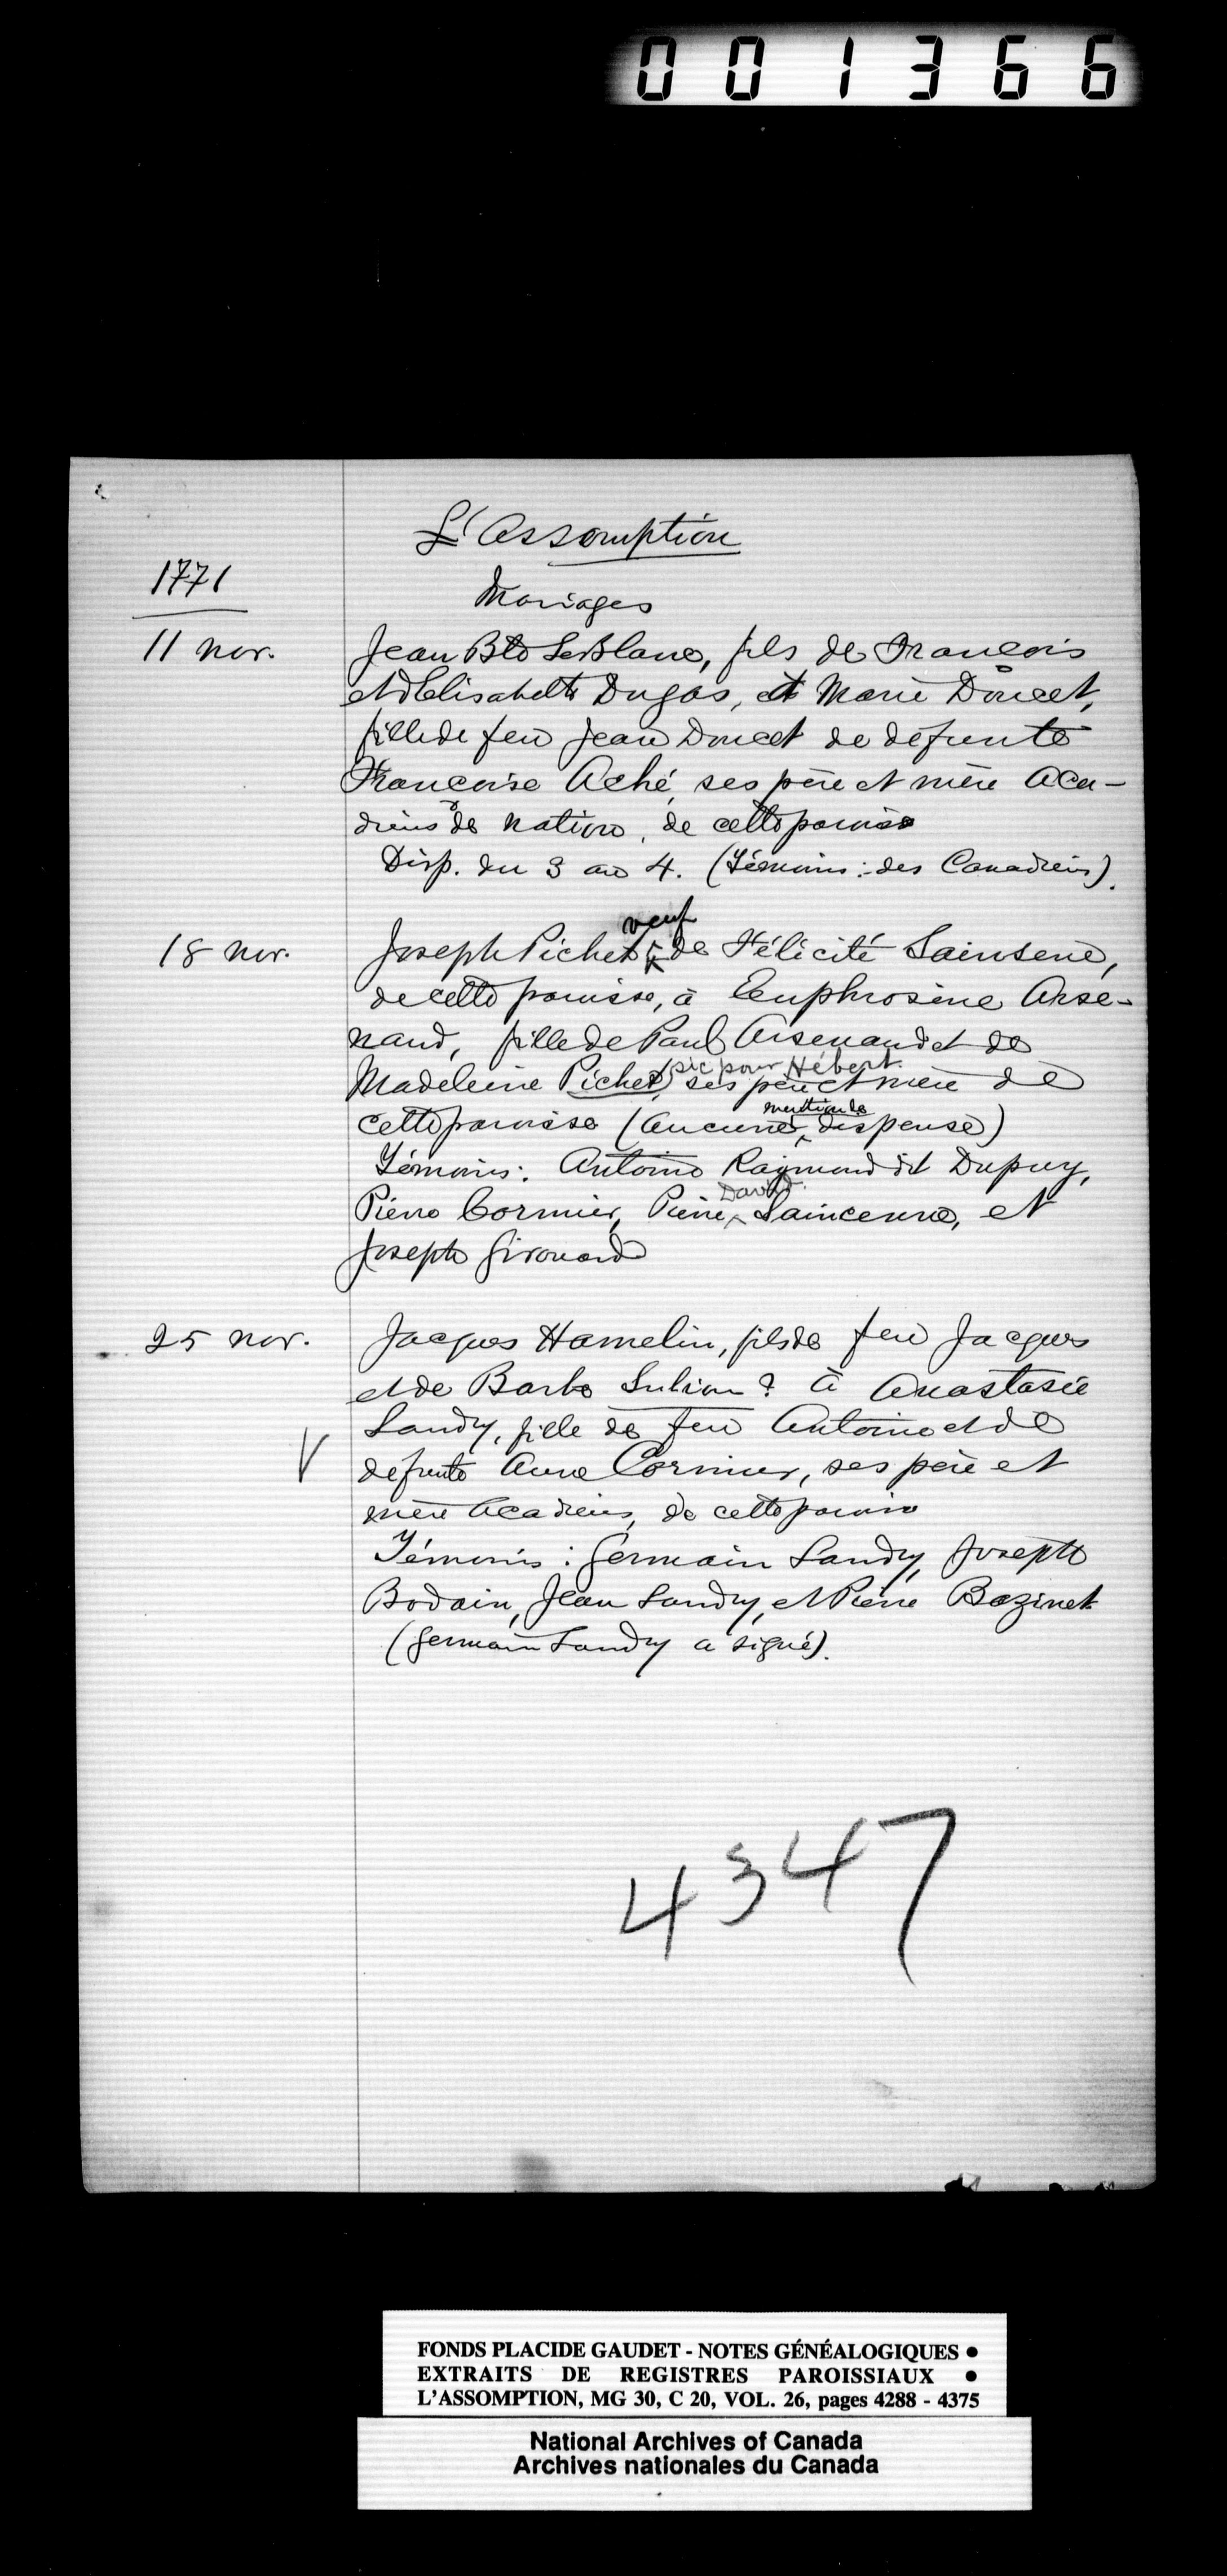 001366
L'Assomption
1771
Mariages
11 nov.
Jean Bte LeBlanc, fils de François
et d'Elisabeth Dugas, et Marie Doucet,
fille de feu Jean Doucet de défunte
Françoise Aché, ses père et mère Aca-
diens de nation, de cette paroisse
Disp. du 3 au 4. (Témoins: des Canadiens).
18 nov.
Joseph Pichet, veuf de Félicité Sainsene,
de cette paroisse, à Euphrosine Arse-
naud, fille de Paul Arsenaud et de
Madeleine Pichet (sic pour Hébert, ses père et mère de
cette paroisse (aucune mention de dispense)
Témoins: Antoine Raymond dit Dupuy,
Pierre Cormier, Pierre David Saincenne, et
Joseph Girouard
25 nov.
Jacques Hamelin, fils de feu Jacques
et de Barbe Sulion? à Anastasie
Landry, fille de feu Antoine et de
défunte Anne Cormier, ses père et
mère Acadiens, de cette paroisse
Témoins: Germain Landry, Joseph
Bodain, Jean Landry, et Pierre Bazinet
(Germain Landry a signé).
4347
FONDS PLACIDE GAUDET - NOTES GÉNÉALOGIQUES •
EXTRAITS DE REGISTRES PAROISSIAUX •
L'ASSOMPTION, MG 30, C 20, VOL. 26, pages 4288 - 4375
National Archives of Canada
Archives nationales du Canada